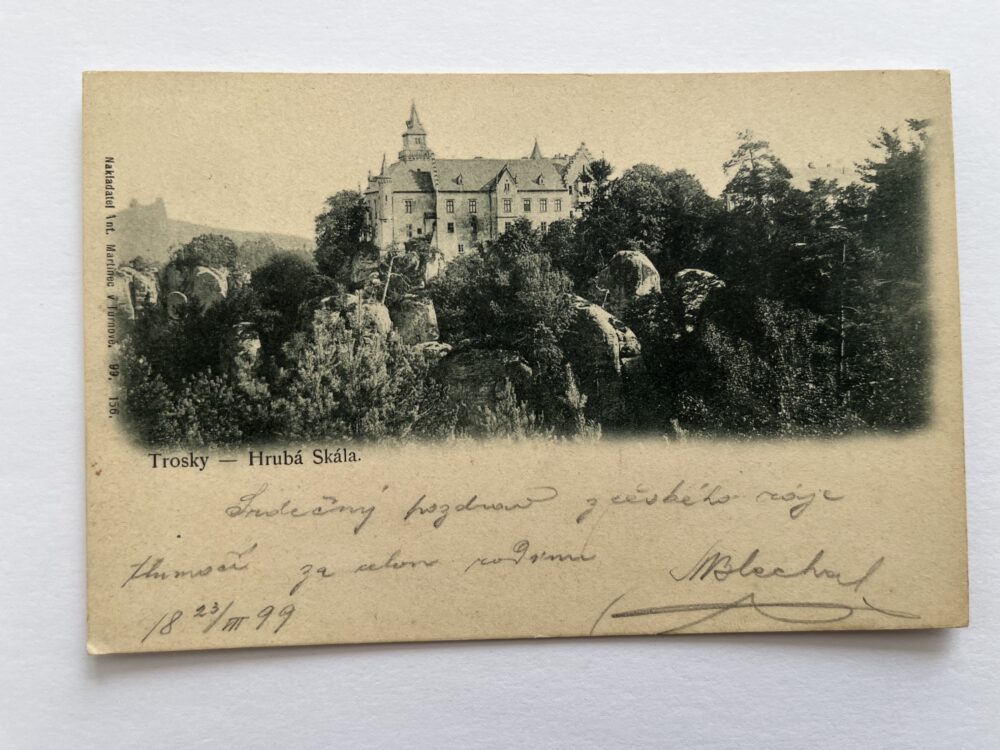 Nakladatel Ant. Martinec v Turnově. 99, 156.
Trosky — Hrubá Skála.
Srdečný pozdrav z českého ráje
tlumočí za celou rodinu
18 23/III 99